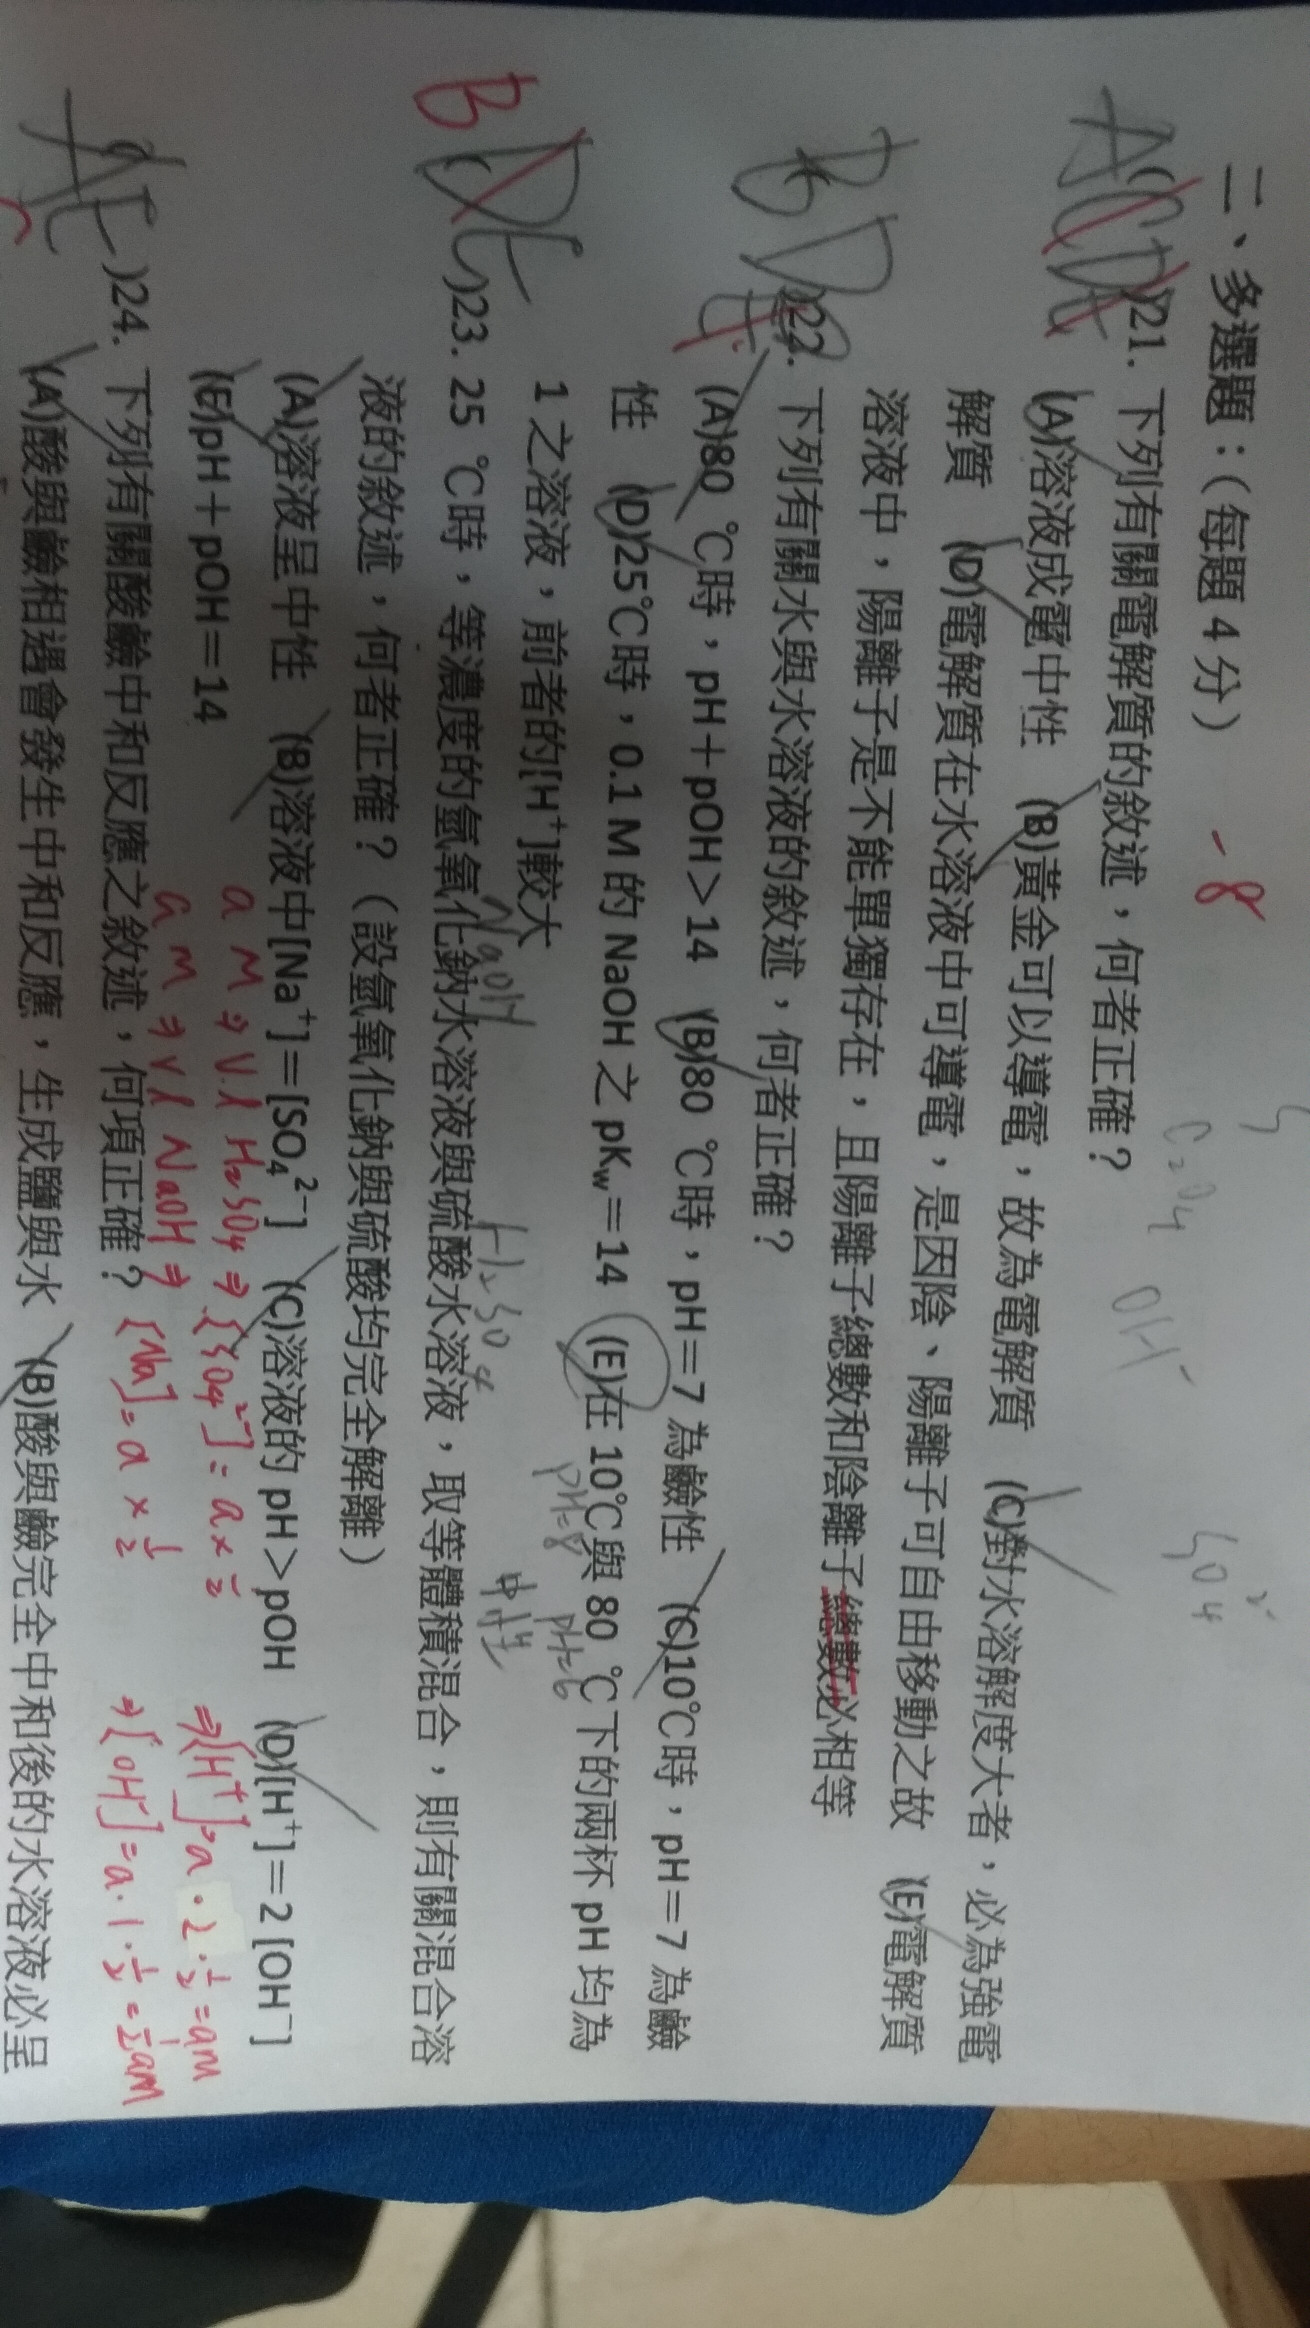 二、多選題：（每題 4 分） -8
C₂O₄ OH⁻ SO₄²⁻
)21. 下列有關電解質的敘述，何者正確？
(A)溶液成電中性 (B)黃金可以導電，故為電解質 (C)對水溶解度大者，必為強電
解質 (D)電解質在水溶液中可導電，是因陰、陽離子可自由移動之故 (E)電解質
溶液中，陽離子是不能單獨存在，且陽離子總數和陰離子總數必相等
BD )22. 下列有關水與水溶液的敘述，何者正確？
(A)80 ℃時，pH＋pOH＞14 (B)80 ℃時，pH＝7 為鹼性 (C)10℃時，pH＝7 為鹼
性 (D)25℃時，0.1 M 的 NaOH 之 pKw＝14 (E)在 10℃與 80 ℃下的兩杯 pH 均為
pH=8 pH=6
1 之溶液，前者的[H⁺]較大
NaOH H₂SO₄ 中性
B DE )23. 25 ℃時，等濃度的氫氧化鈉水溶液與硫酸水溶液，取等體積混合，則有關混合溶
液的敘述，何者正確？（設氫氧化鈉與硫酸均完全解離）
(A)溶液呈中性 (B)溶液中[Na⁺]＝[SO₄²⁻] (C)溶液的 pH＞pOH (D)[H⁺]＝2 [OH⁻]
(E)pH＋pOH＝14
a M ⇒ V l H₂SO₄ ⇒ [SO₄²⁻] = a × ½ ⇒ [H⁺] = a · 2 · ½ = aM
a M ⇒ V l NaOH ⇒ [Na] = a × ½ ⇒ [OH⁻] = a · 1 · ½ = ½ aM
)24. 下列有關酸鹼中和反應之敘述，何項正確？
(A)酸與鹼相遇會發生中和反應，生成鹽與水 (B)酸與鹼完全中和後的水溶液必呈